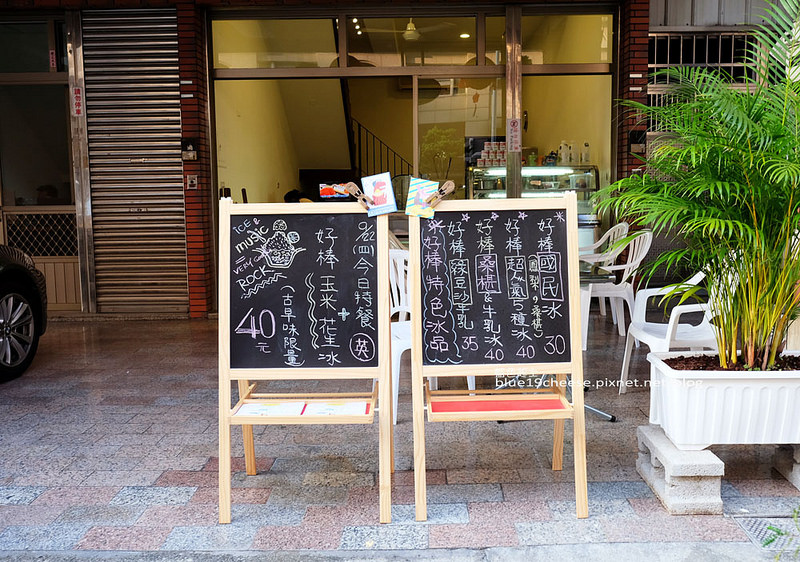 請勿停車
ICE &
music
= VERY
ROCK
9/22(四)今日特餐
好棒玉米+花生冰
40元
(古早味限量)
英
好棒特色冰品
好棒綠豆沙牛乳 35
好棒桑椹&牛乳冰 40
好棒超人氣5種冰 40
好棒國民冰 30
(鳳梨,桑椹)
blue19cheese.pixnet